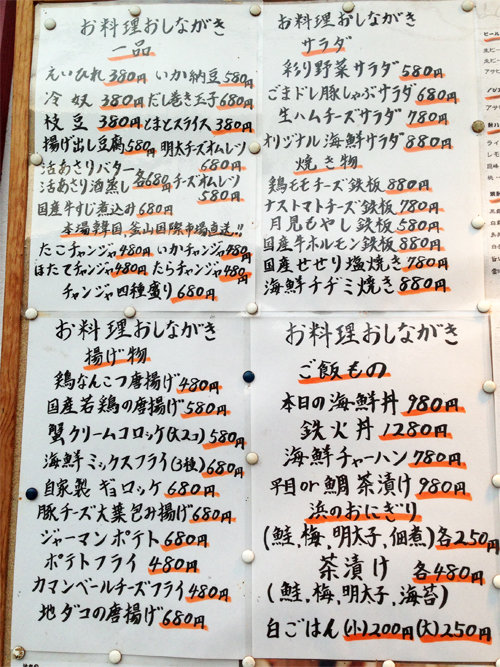 お料理おしながき
一品
えいひれ 380円 いか納豆 580円
冷奴 380円 だし巻き玉子 680円
枝豆 380円 とまとスライス 380円
揚げ出し豆腐 580円 明太チーズオムレツ 680円
活あさりバター
活あさり酒蒸し 各680円 チーズオムレツ 580円
国産牛すじ煮込み 680円
本場韓国、釜山国際市場直送!!
たこチャンジャ 480円 いかチャンジャ 480円
ほたてチャンジャ 480円 たらチャンジャ 480円
チャンジャ四種盛り 680円
お料理おしながき
サラダ
彩り野菜サラダ 580円
ごまドレ豚しゃぶサラダ 680円
生ハムチーズサラダ 780円
オリジナル海鮮サラダ 880円
焼き物
鶏モモチーズ鉄板 880円
ナストマトチーズ鉄板 780円
月見もやし鉄板 580円
国産牛ホルモン鉄板 880円
国産せせり塩焼き 780円
海鮮チヂミ焼き 880円
お料理おしながき
揚げ物
鶏なんこつ唐揚げ 480円
国産若鶏の唐揚げ 580円
蟹クリームコロッケ(大2コ) 580円
海鮮ミックスフライ(3種) 680円
自家製 ギョロッケ 680円
豚チーズ大葉包み揚げ 680円
ジャーマンポテト 680円
ポテトフライ 480円
カマンベールチーズフライ 480円
地ダコの唐揚げ 680円
お料理おしながき
ご飯もの
本日の海鮮丼 980円
鉄火丼 1280円
海鮮チャーハン 780円
平目or鯛 茶漬け 980円
浜のおにぎり
(鮭、梅、明太子、佃煮) 各250円
茶漬け 各480円
(鮭、梅、明太子、海苔)
白ごはん (小)200円 (大)250円